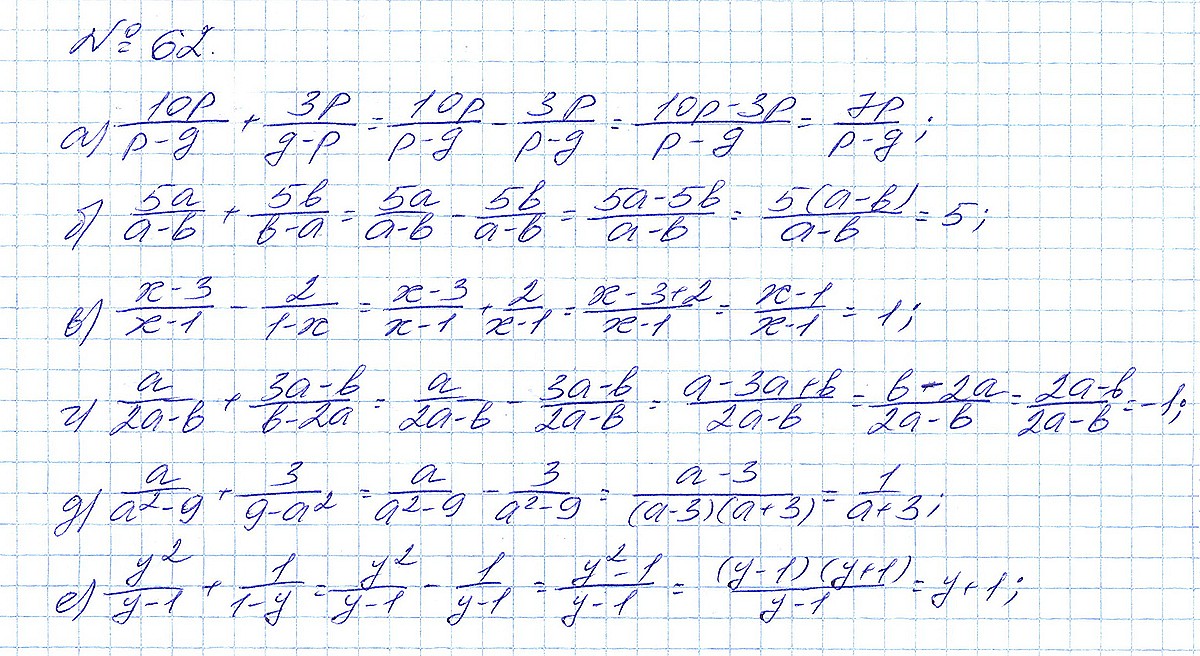 № 62.
а) 10p/(p-g) + 3p/(g-p) = 10p/(p-g) - 3p/(p-g) = (10p-3p)/(p-g) = 7p/(p-g);
б) 5a/(a-b) + 5b/(b-a) = 5a/(a-b) - 5b/(a-b) = (5a-5b)/(a-b) = 5(a-b)/(a-b) = 5;
в) (x-3)/(x-1) - 2/(1-x) = (x-3)/(x-1) + 2/(x-1) = (x-3+2)/(x-1) = (x-1)/(x-1) = 1;
г) a/(2a-b) + (3a-b)/(b-2a) = a/(2a-b) - (3a-b)/(2a-b) = (a-3a+b)/(2a-b) = (b-2a)/(2a-b) = (2a-b)/(2a-b) = -1;
д) a/(a²-9) + 3/(9-a²) = a/(a²-9) - 3/(a²-9) = (a-3)/((a-3)(a+3)) = 1/(a+3);
е) y²/(y-1) + 1/(1-y) = y²/(y-1) - 1/(y-1) = (y²-1)/(y-1) = (y-1)(y+1)/(y-1) = y+1;